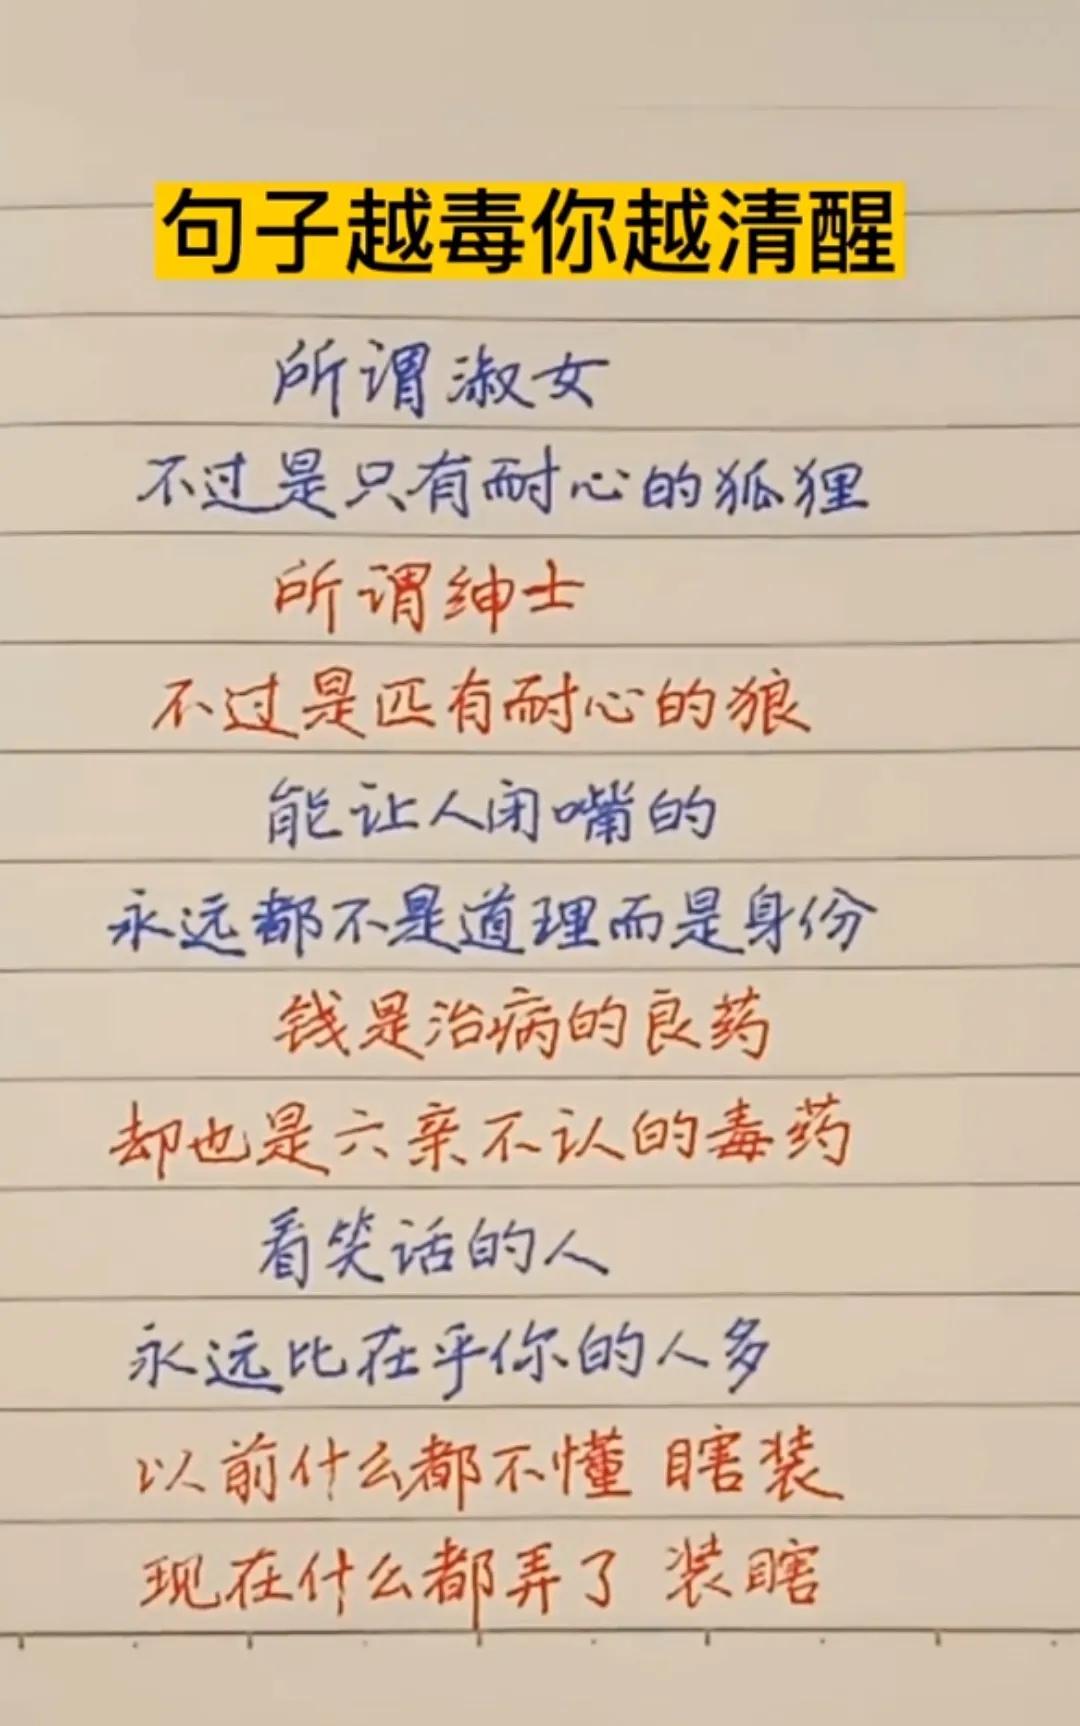 句子越毒你越清醒
所谓淑女
不过是只有耐心的狐狸
所谓绅士
不过是匹有耐心的狼
能让人闭嘴的
永远都不是道理而是身份
钱是治病的良药
却也是六亲不认的毒药
看笑话的人
永远比在乎你的人多
以前什么都不懂 瞎装
现在什么都弄了 装瞎